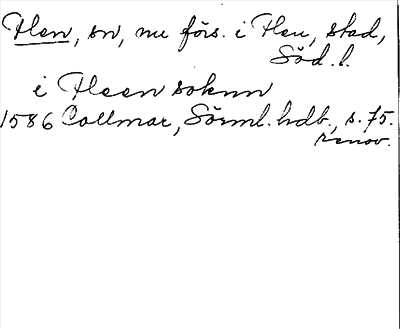 Flen, sn, nu förs. i Flen, stad,
Söd. l.
i Fleen soknn
1586 Collmar, Sörml. hdb., s. 75.
renov.